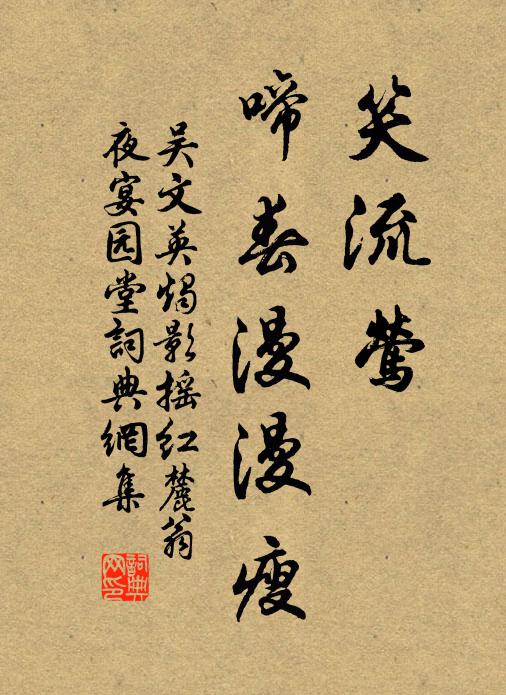 笑流莺
啼春漫漫瘦
吴文英烛影摇红麓翁
夜宴园堂詞典網集
詞典网印